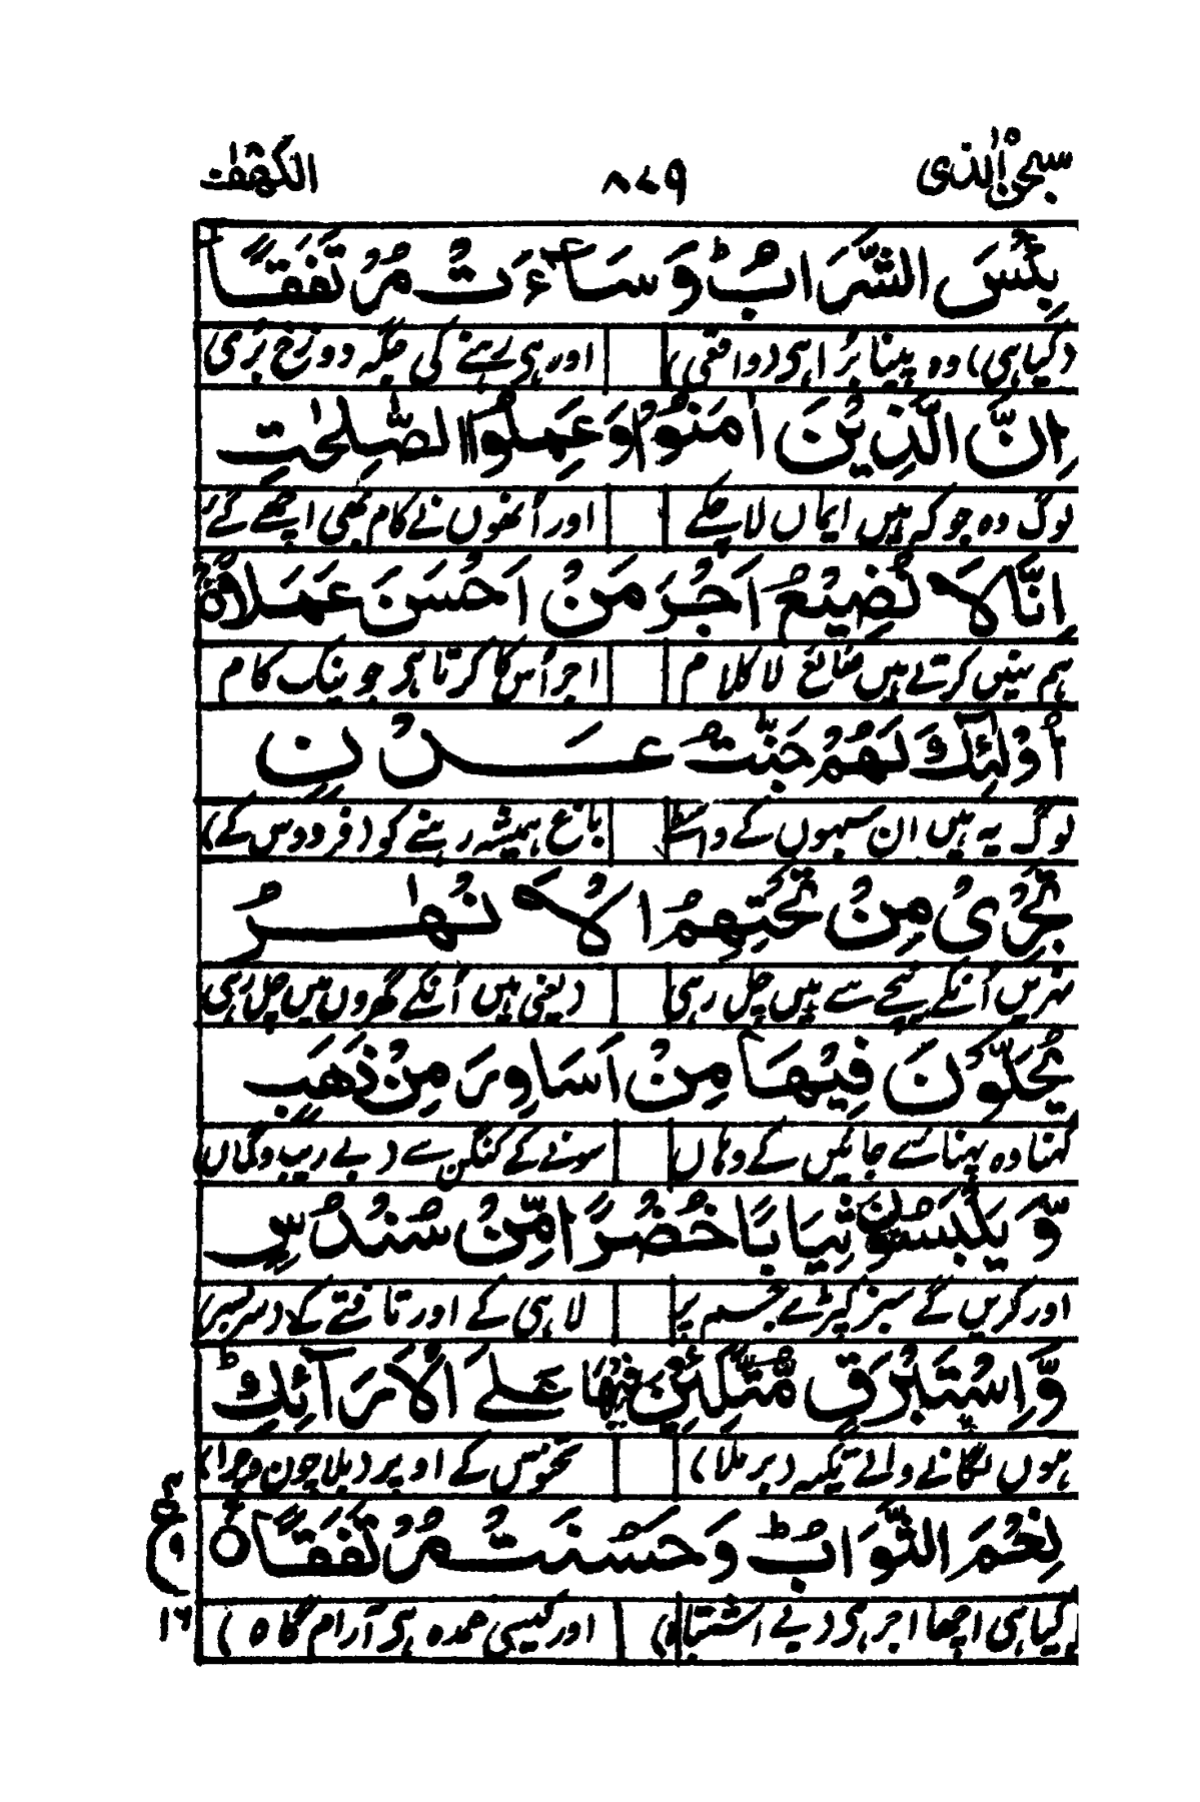 سبحٰن الذی ۱۵ ۸۷۹ الکھف ۱۸
بِئْسَ الشَّرَابُ ؕ وَسَآءَتْ مُرْتَفَقًا
(کیا ہی) وہ پینا برا ہی (واقعی) اور ہی رہنے کی جگہ دوزخ بری
اِنَّ الَّذِیْنَ اٰمَنُوْا وَعَمِلُوا الصّٰلِحٰتِ
لوگ وہ جو کہ ہیں ایماں لا چکے اور اُنھوں نے کام بھی اچھے کئے
اِنَّا لَا نُضِیْعُ اَجْرَ مَنْ اَحْسَنَ عَمَلًا
ہم نہیں کرتے ہیں ضائع لا کلام اجر اُس کا کرتا ہی جو نیک کام
اُولٰٓئِكَ لَهُمْ جَنّٰتُ عَدْنٍ
لوگ یہ ہیں ان سبہوں کے واسطے باغ ہمیشہ رہنے کو (فردوس کے)
تَجْرِیْ مِنْ تَحْتِهِمُ الْاَنْهٰرُ
نہریں اُنکے نیچے سے ہیں چل رہی (یعنی ہیں اُنکے گھروں میں چل رہی
یُحَلَّوْنَ فِیْهَا مِنْ اَسَاوِرَ مِنْ ذَهَبٍ
گہنا وہ پہنائے جائیں گے وہاں سونے کے کنگن سے (بے ریب و گماں)
وَّیَلْبَسُوْنَ ثِیَابًا خُضْرًا مِّنْ سُنْدُسٍ
اور کریں گے سبز کپڑے جسم پر لاہی کے اور تافتے کے (سربسر)
وَّاِسْتَبْرَقٍ مُّتَّكِئِیْنَ فِیْهَا عَلَی الْاَرَآئِكِ ؕ
ہوں لگانے والے تکیہ (برملا) تختوں کے اوپر (بلا چون و چرا)
نِعْمَ الثَّوَابُ ؕ وَحَسُنَتْ مُرْتَفَقًا
کیا ہی اچھا اجر ہی (بے اشتباہ) اور کیسی عمدہ ہی آرام گاہ ہ )
ع
۱۶